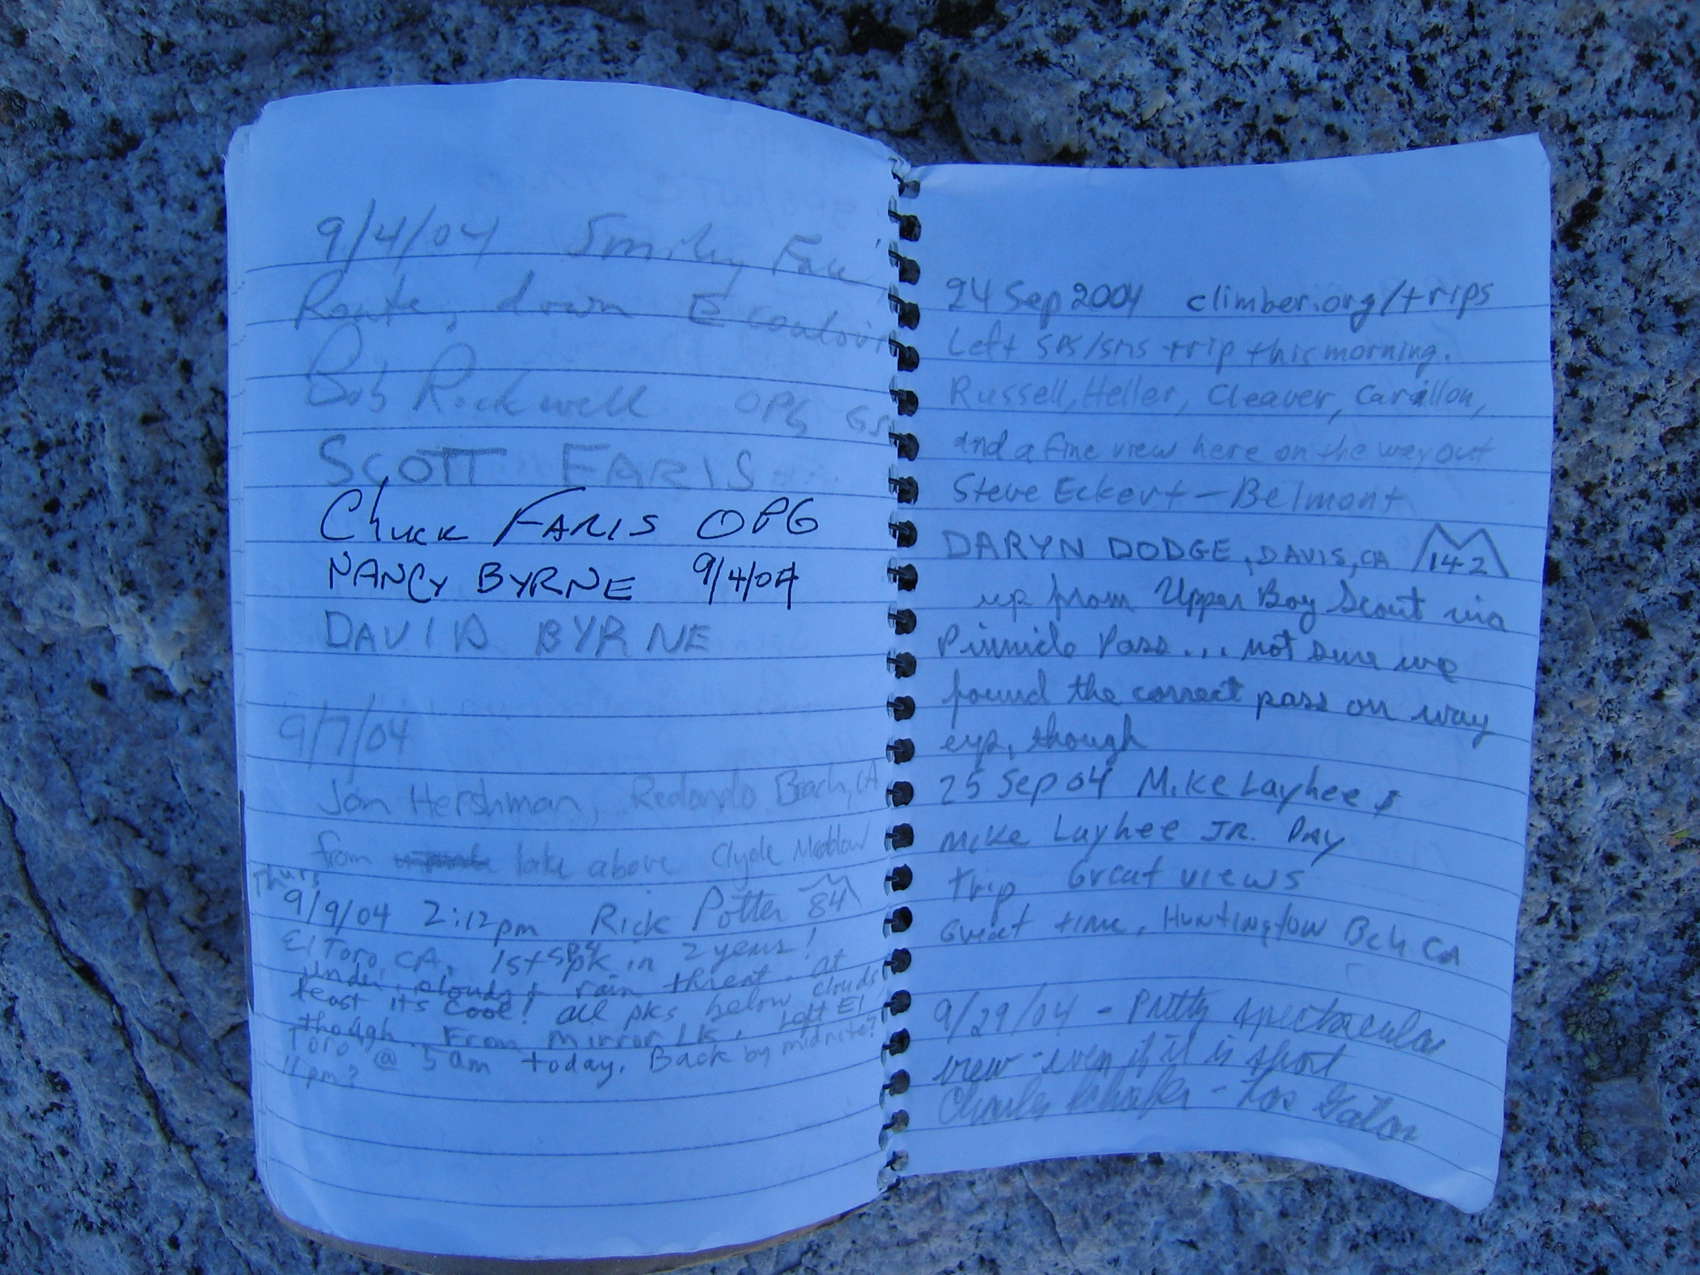 9/4/04 Smiley Fau
Route, down E couloir
Bob Rockwell OPG GS
SCOTT FARIS
Chuck FARIS OPG
NANCY BYRNE 9/4/04
DAVID BYRNE
9/7/04
Jon Hershman, Redondo Beach, CA
from lake above Clyde Meadow
Thurs
9/9/04 2:12pm Rick Potter 84
El Toro CA. 1st SPS pk in 2 years!
Under clouds & rain threat. At
least it's cool! All pks below clouds
though. From Mirror Lk. Left El
Toro @ 5am today. Back by midnite?
11pm?
24 Sep 2004 climber.org/trips
Left SPS/SMS trip this morning.
Russell, Heller, Cleaver, Carillon,
and a fine view here on the way out
Steve Eckert - Belmont
DARYN DODGE, DAVIS, CA 142
up from Upper Boy Scout via
Pinnicle Pass... not sure we
found the correct pass on way
up, though
25 Sep 04 Mike Layhee &
Mike Layhee JR. DAY
Trip Great views
Great time, Huntington Bch CA
9/29/04 - Pretty spectacular
view - even if it is short
Charles Schafer - Los Gatos